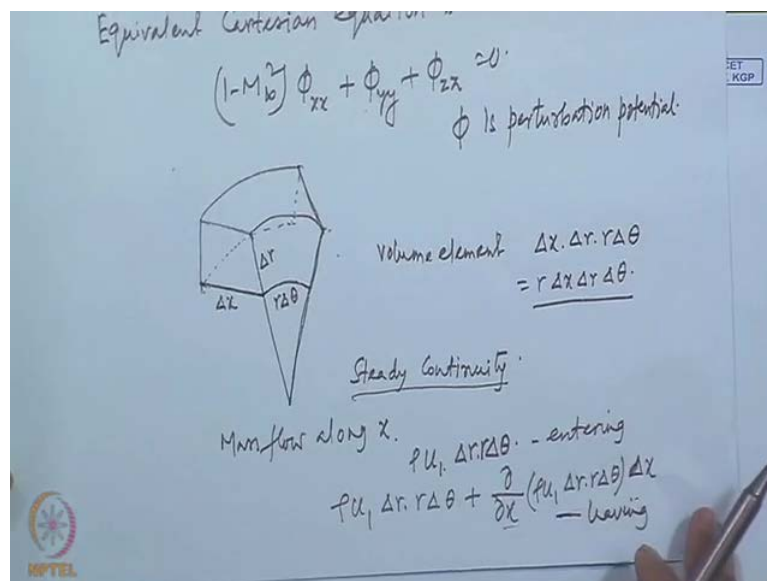 Equivalent Cartesian Equation
(1-M∞²) ϕxx + ϕyy + ϕzz = 0.
ϕ is perturbation potential.
CET
KGP
Δr
Δx
rΔθ
Volume element Δx. Δr. rΔθ
= r Δx Δr Δθ.
Steady Continuity.
Mass flow along x.
ρu₁. Δr. rΔθ. - entering
ρu₁ Δr. rΔθ + ∂/∂x (ρu₁ Δr. rΔθ) Δx
— leaving
NPTEL